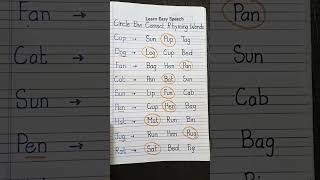 Learn Easy Speech
Circle the Correct Rhyming Words
Cup → Sun Pup Tag
Dog → Log Cup Bed
Fan → Bag Hen Pan
Cat → Pan Bat Sun
Sun → Lip Fun Cab
Pen → Cup Hen Bag
Hat → Mat Run Bin
Jug → Run Hen Rug
Rat → Sat Bed
Fan Pan
Cat → Sun
Sun → Cab
Pen → Bag
Hat → Bin